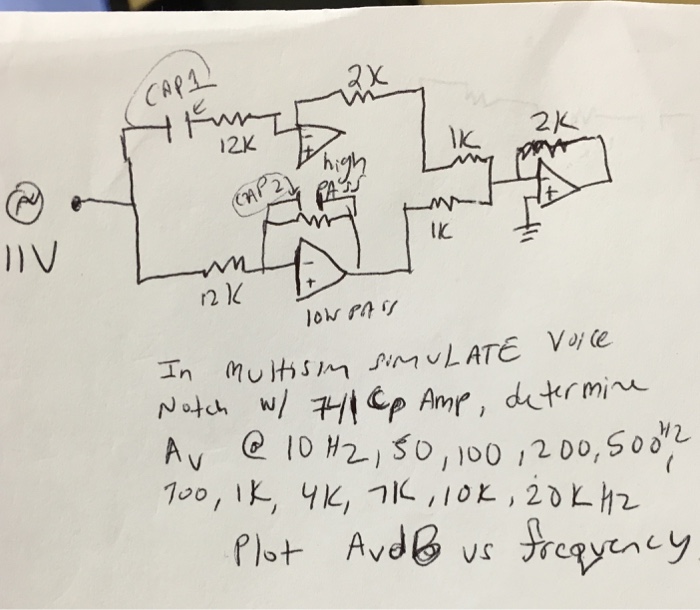 CAP1
2K
12K
1K
2K
high
PASS
CAP2
11V
1K
12K
low PASS
In Multisim SIMULATE Voice
Notch w/ 741 Op Amp, determine
Av @ 10 Hz, 50, 100, 200, 500 Hz,
700, 1K, 4K, 7K, 10K, 20K Hz
Plot AvdB vs frequency